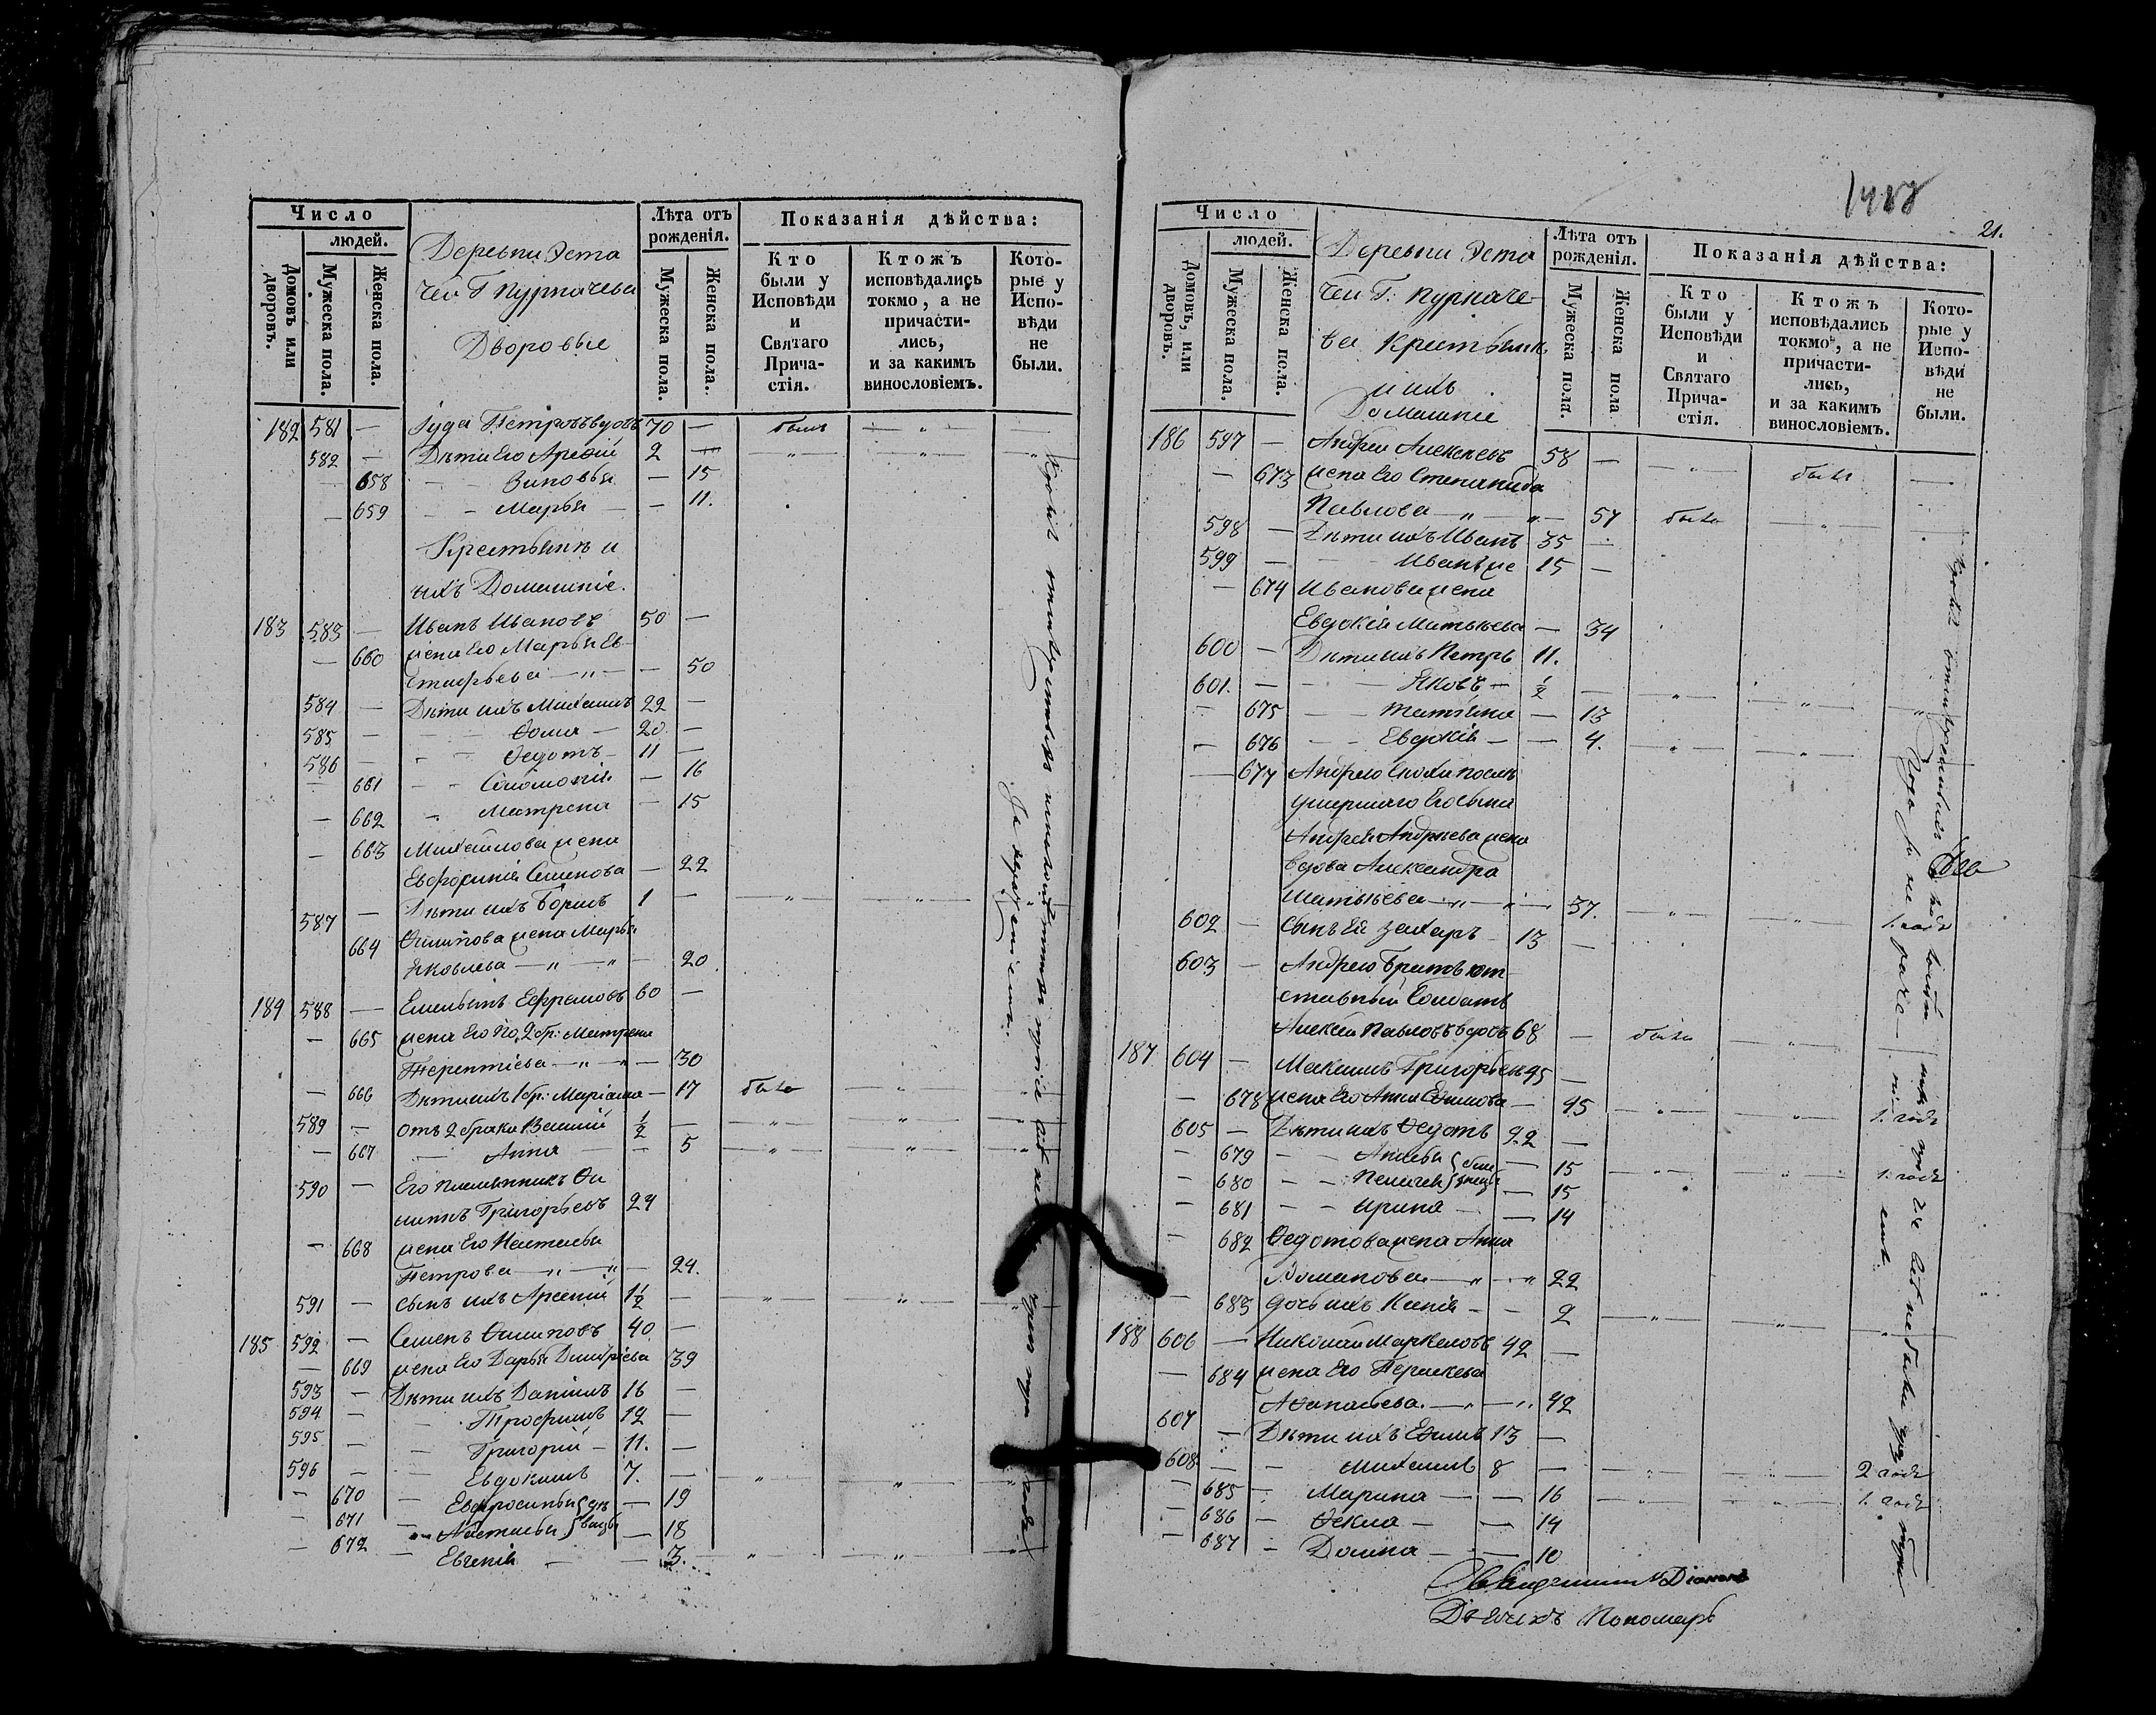 Число
людей.
Домовъ или дворовъ.
Мужеска пола.
Женска пола.
Деревни Эста
чеи Г Пурначева
Дворовые
Лѣта отъ рожденія.
Мужеска пола.
Женска пола.
Показанія дѣйства:
Кто были у Исповѣди и Святаго Прича-стія.
Ктожъ исповѣдались токмо, а не причасти-лись, и за какимъ винословіемъ.
Кото-рые у Испо-вѣди не были.
182 581 — Іуда Петровъ вдовъ 70 — былъ — „ —
582 — Дѣти Его Арефій 2
— 658 Зиновья — 15
— 659 — Марья — 11.
Крестьянѣ и
ихъ Домашніе.
183 583 — Иванъ Ивановъ 50 —
— 660 жена Его Марья Ев-
стафьева — „ — 50
584 — Дѣти ихъ Михаилъ 22 —
585 — Ѳома — 20 —
586 — Ѳедотъ — 11 —
— 661 — Соломонія — 16
— 662 „ Матрена — 15
— 663 Михайлова жена
Евфросинія Семенова — 22
587 — Дѣти ихъ Борисъ 1 —
664 жена Марья
Яковлева — „ — „ — 20
189 588 — Емельянъ Ефремовъ 60 —
— 665 жена Его по 2 бр: Матрена
Терентіева — „ — „ — 30
— 666 Дѣти ихъ 1 бр: Маріамна — 17 была — „ —
589 — отъ 2 брака Василій ½ —
— 667 — Анна — 5
590 — Его племянникъ Фи
липпъ Григорьевъ 24
— 668 жена Его Наталья
Петрова — „ — „ — 24.
591 — сынъ ихъ Арсеній 1½ —
185 592 — Семенъ Филиповъ 40 —
— 669 жена Его Дарья Димитріева 39
593 — Дѣти ихъ Даніилъ 16 —
594 — Трофимъ 12 —
595 — Григорій — 11. —
596 — Евдокимъ 7. —
— 670 — Евфросинья — 19
— 671 — Настасья — 18
— 672 — Евгенія — 3.
1488
21.
Число
людей.
Домовъ, или дворовъ.
Мужеска пола.
Женска пола.
Деревни Эста
чеи Г: Пурначе-
ва Крестьянѣ
и ихъ
Домашніе
Лѣта отъ рожденія.
Мужеска пола.
Женска пола
Показанія дѣйства:
Кто были у Исповѣди и Святаго Прича-стія.
Ктожъ исповѣдались токмо, а не причасти-лись, и за какимъ винословіемъ.
Кото-рые у Испо-вѣди не были.
186 597 — Андрей Алексѣевъ 58 —
— 673 жена Его Степанида
Павлова — „ — „ — 57 была — „ —
598 — Дѣти ихъ Иванъ 35 —
599 — Иванъ же 15 —
— 674 Иванова жена
Евдокія Матвѣева — 34
600 — Дѣти ихъ Петръ 11.
601. — Яковъ — ½ —
— 675 — Татьяна — 13
— 676 — Евдокія — 4.
— 677 Андрею Сноха послѣ
умершаго Его сына
Андрея Андрѣева жена
вдова Александра
Матвѣева — „ — „ — 37.
602 — сынъ Ея Захаръ — 13 — 1. годъ
603 — Андрею братъ от-
ставный Солдатъ
Алексѣй Павловъ вдовъ 68 —
187 604 — Максимъ Григорьевъ 45 —
— 678 жена Его Анна Ефимова — 45 1. годъ
605 — Дѣти ихъ Ѳедотъ 22 —
— 679 — — 15 1. годъ
— 680 — Пелагея — 15
— 681 — Ирина — 14
— 682 Ѳедотова жена Анна
Романова — „ — „ 22
— 683 дочь ихъ Ксенія — — 2
188 606 — Николай Маркеловъ 42 —
— 684 жена Его Параскева
Аѳанасьева. — „ — „ 42
607 — Дѣти ихъ Ефимъ 13 —
608 — Михаилъ 8 — 2 годъ
685 — Марина — — 16 1. годъ
— 686 — Ѳекла — — 14
— 687 — Домна — — 10
Пономарь